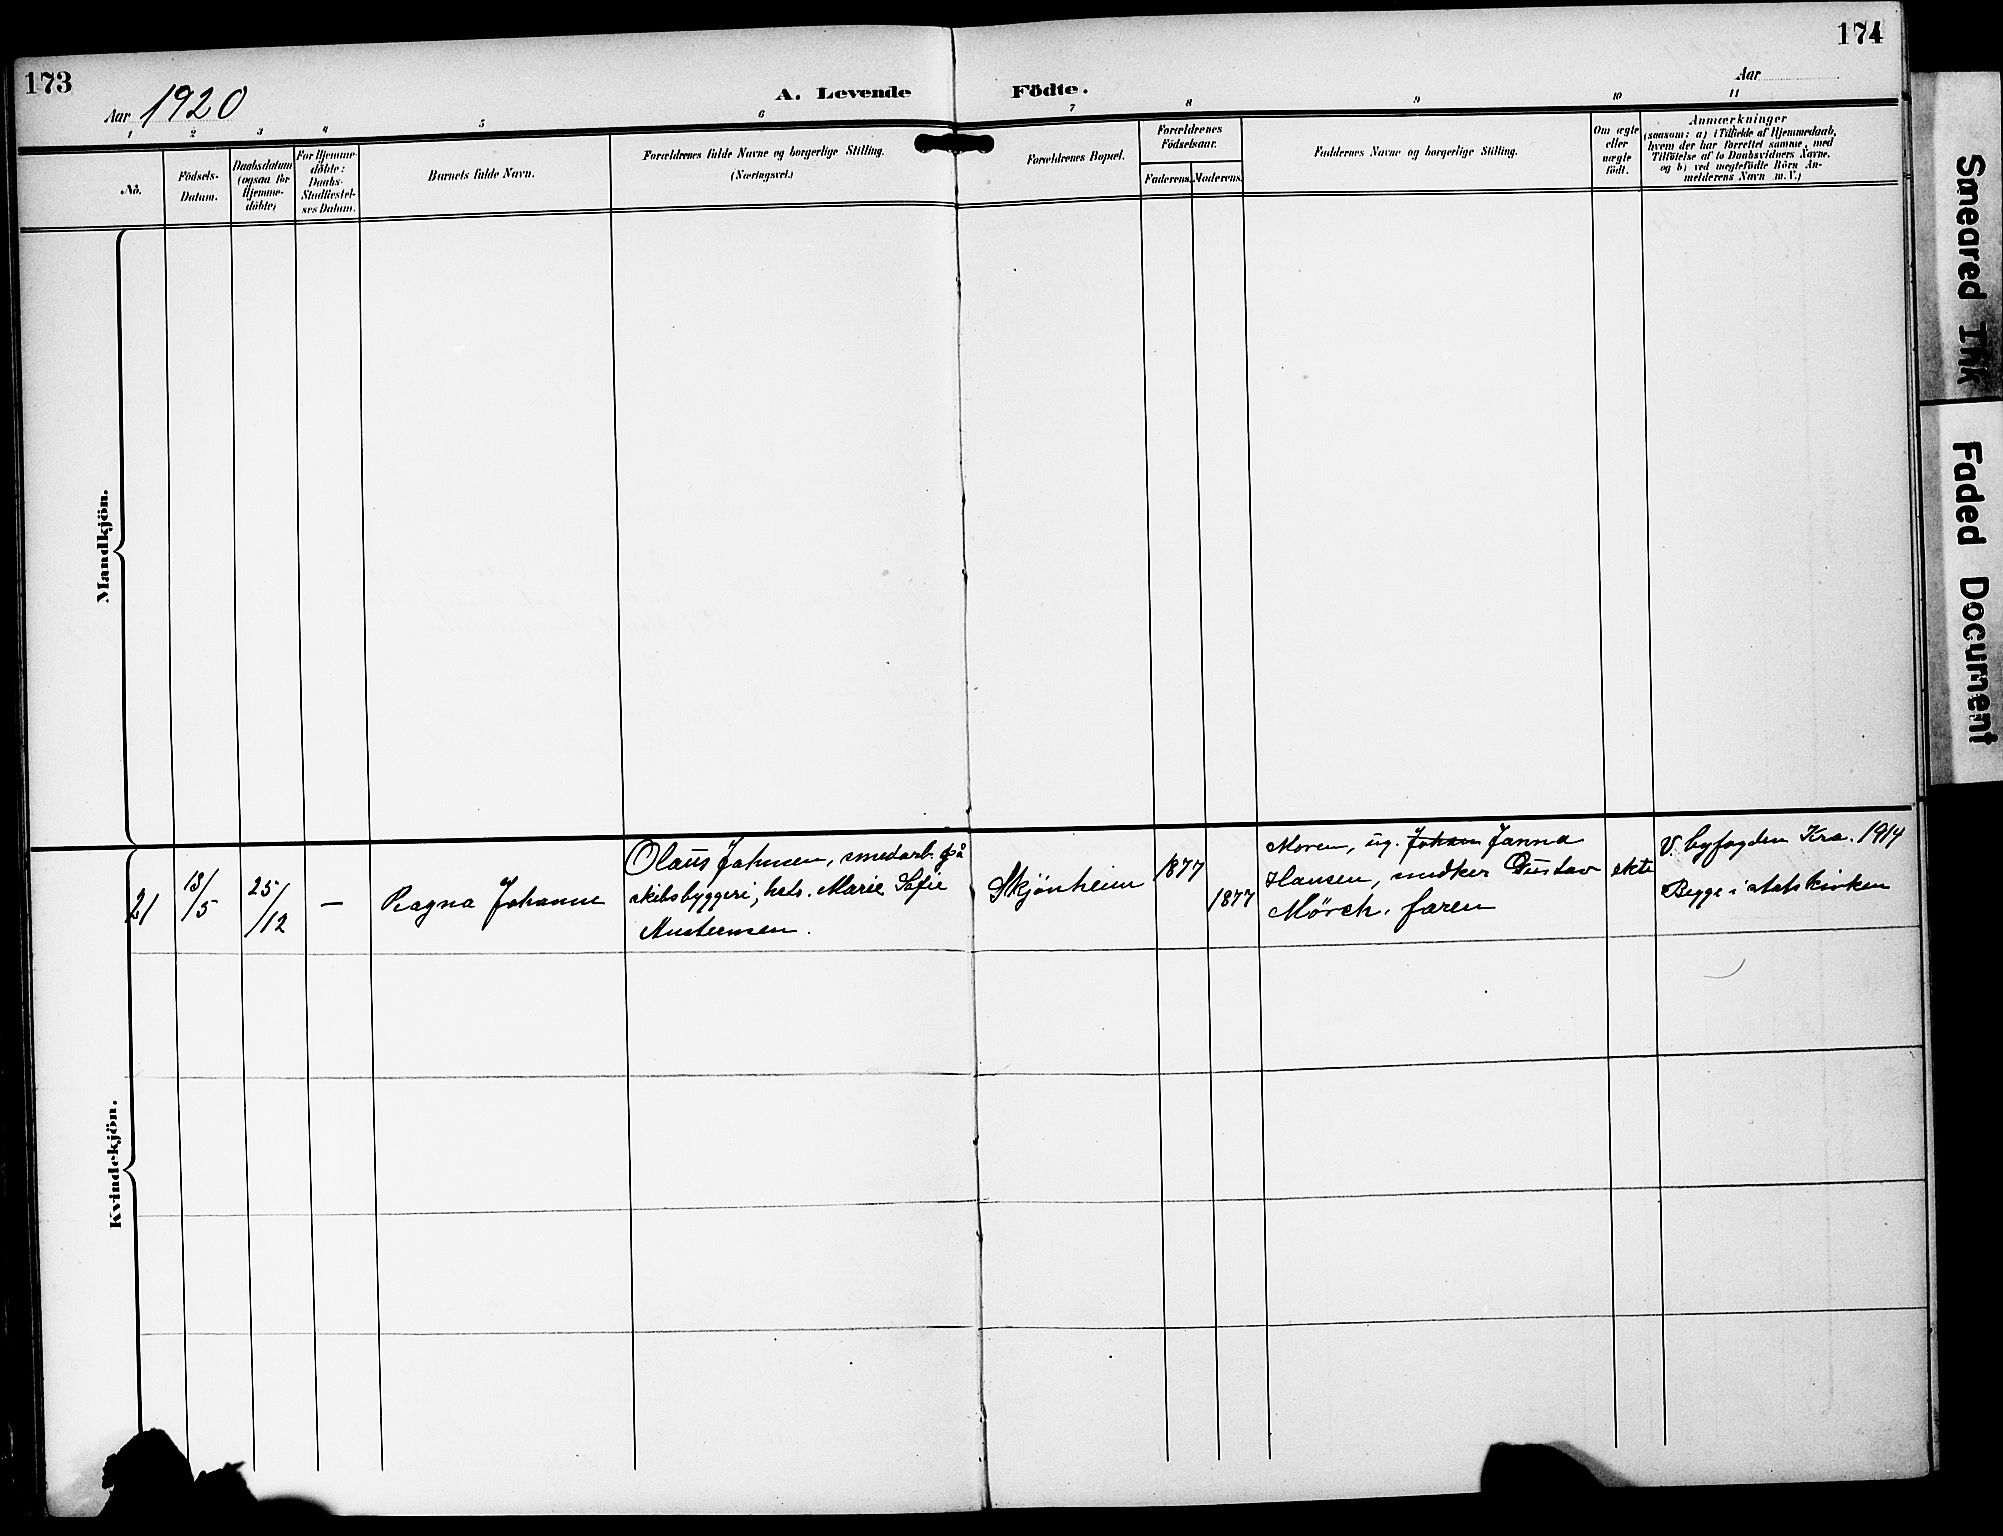 173
174
Aar 1920
A. Levende Födte.
Aar
1 2 3 4 5 6 7 8 9 10 11
No.
Födsels-
Datum.
Daabsdatum
(ogsaa for
Hjemme-
döbte)
For Hjemme-
döbte:
Daabs-
Stadfæstel-
ses Datum.
Barnets fulde Navn.
Forældrenes fulde Navne og borgerlige Stilling.
(Næringsvei.)
Forældrenes Bopæl.
Forældrenes
Födselsaar.
Faderens. Moderens.
Faddernes Navne og borgerlige Stilling.
Om ægte
eller
uægte
födt.
Anmærkninger
(saasom: a) i Tilfælde af Hjemmedaab,
hvem der har forrettet samme, med
Tilföielse af to Daabsvidners Navne,
og b) ved uægtefödte Börn An-
melderens Navn m. V.)
Mandkjön.
Kvindekjön.
21
13/5
25/12
—
Ragna Johanne
Olaus Johnsen, smedarb. på
skibsbyggeri, hstr. Marie Sofie
Austensen.
Skjönheim
1877
1877
Moren, ug. Johan Janna
Hansen, snedker Gustav
Mörch, faren
ekte
V. byfogden Kra. 1914
Begge i statskirken
Smeared Ink
Faded Document